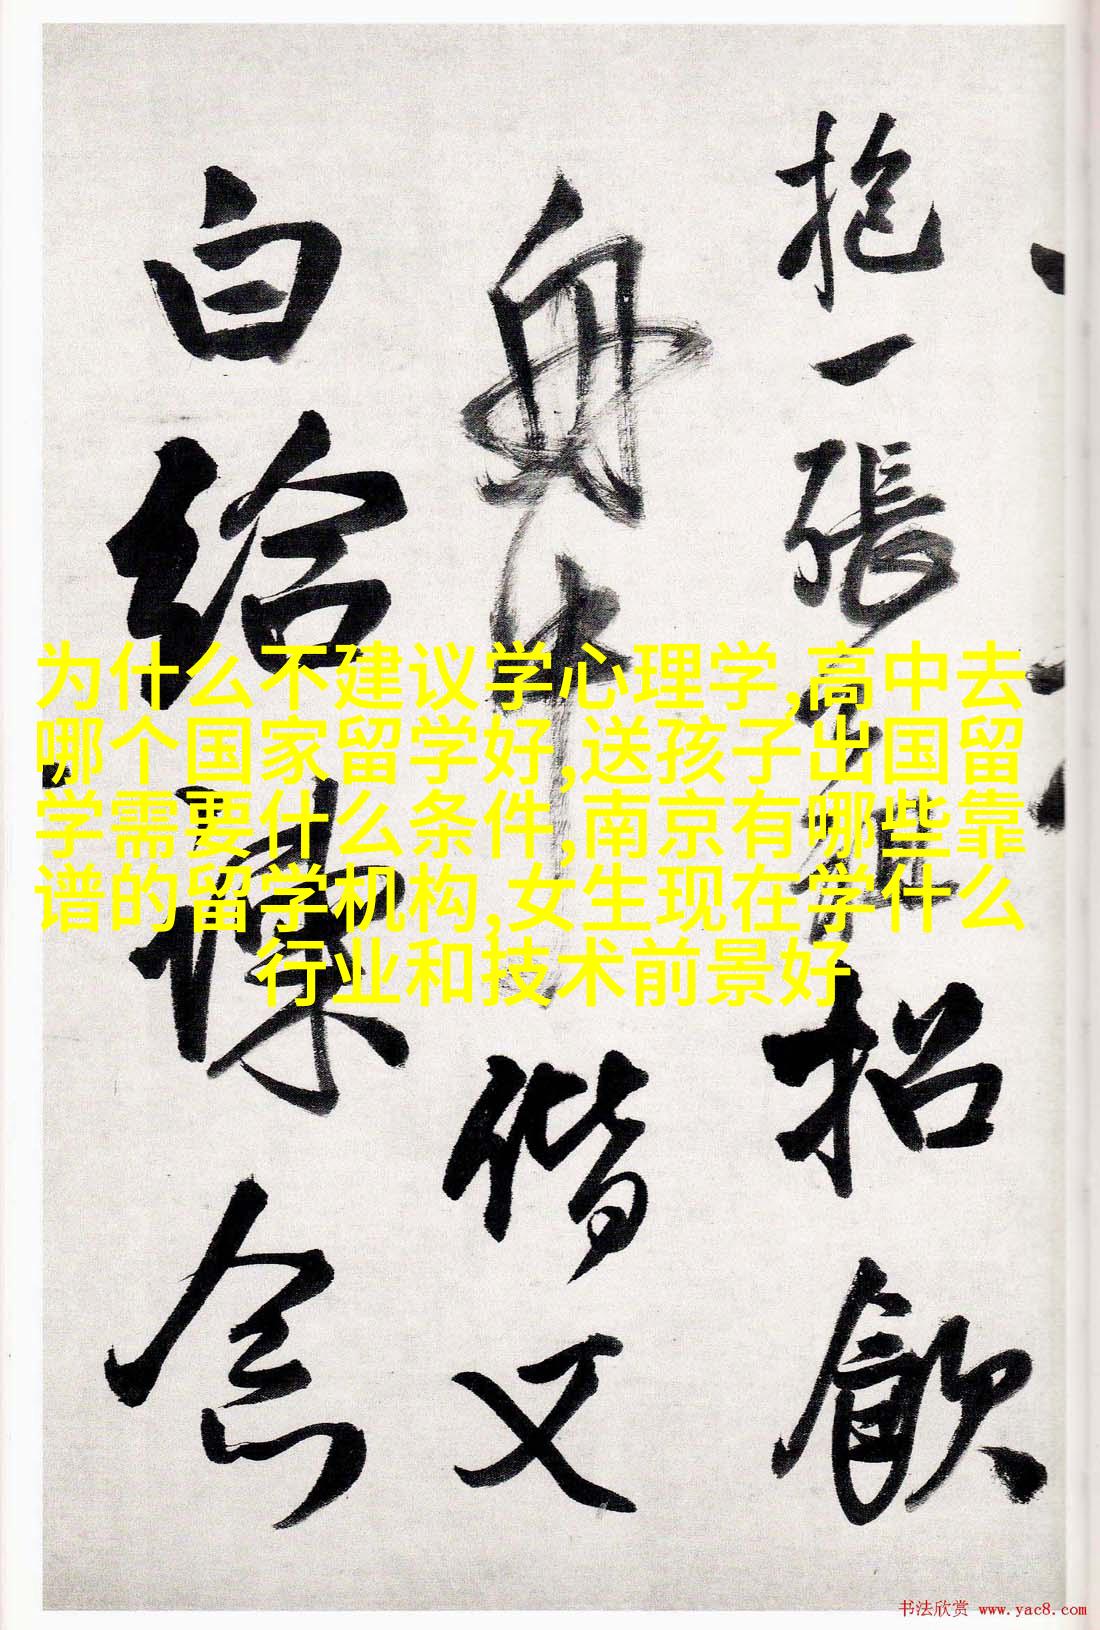 抱一張
招飲
舟中
偕又
白給諫
念
为什么不建议学心理学,高中去
哪个国家留学好,送孩子出国留
学需要什么条件,南京有哪些靠
谱的留学机构,女生现在学什么
行业和技术前景好
书法欣赏 www.yac8.com